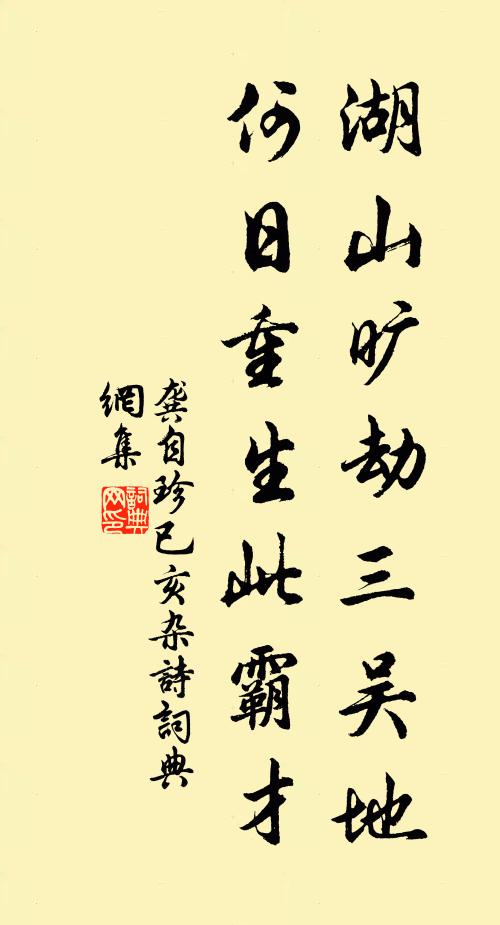 湖山旷劫三吴地
何日重生此霸才
龚自珍己亥杂詩詞典
網集
詞典
网印